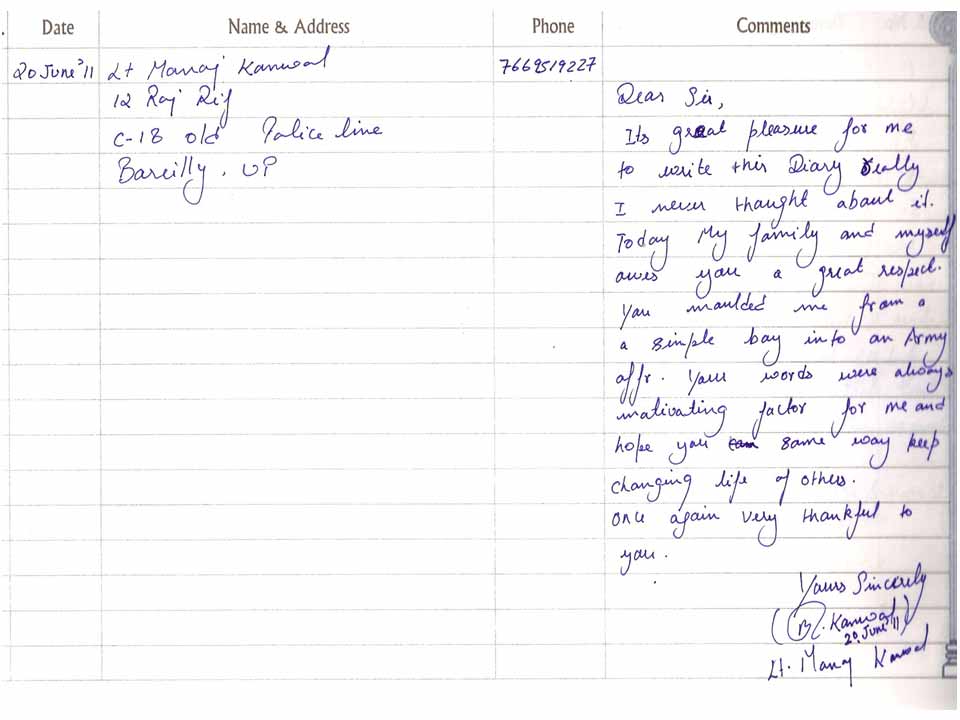 Date Name & Address Phone Comments
20 June'11 Lt Manoj Kanwal 7669519227
12 Raj Rif
C-18 old Police line
Bareilly, UP
Dear Sir,
Its great pleasure for me
to write this Diary really
I never thought about it.
Today My family and myself
owes you a great respect.
You moulded me from a
a simple boy into an Army
offr. Your words were always
motivating factor for me and
hope you same way keep
changing life of others.
once again very thankful to
you.
Yours Sincerely
Kanwal
20 June '11
Lt. Manoj Kanwal